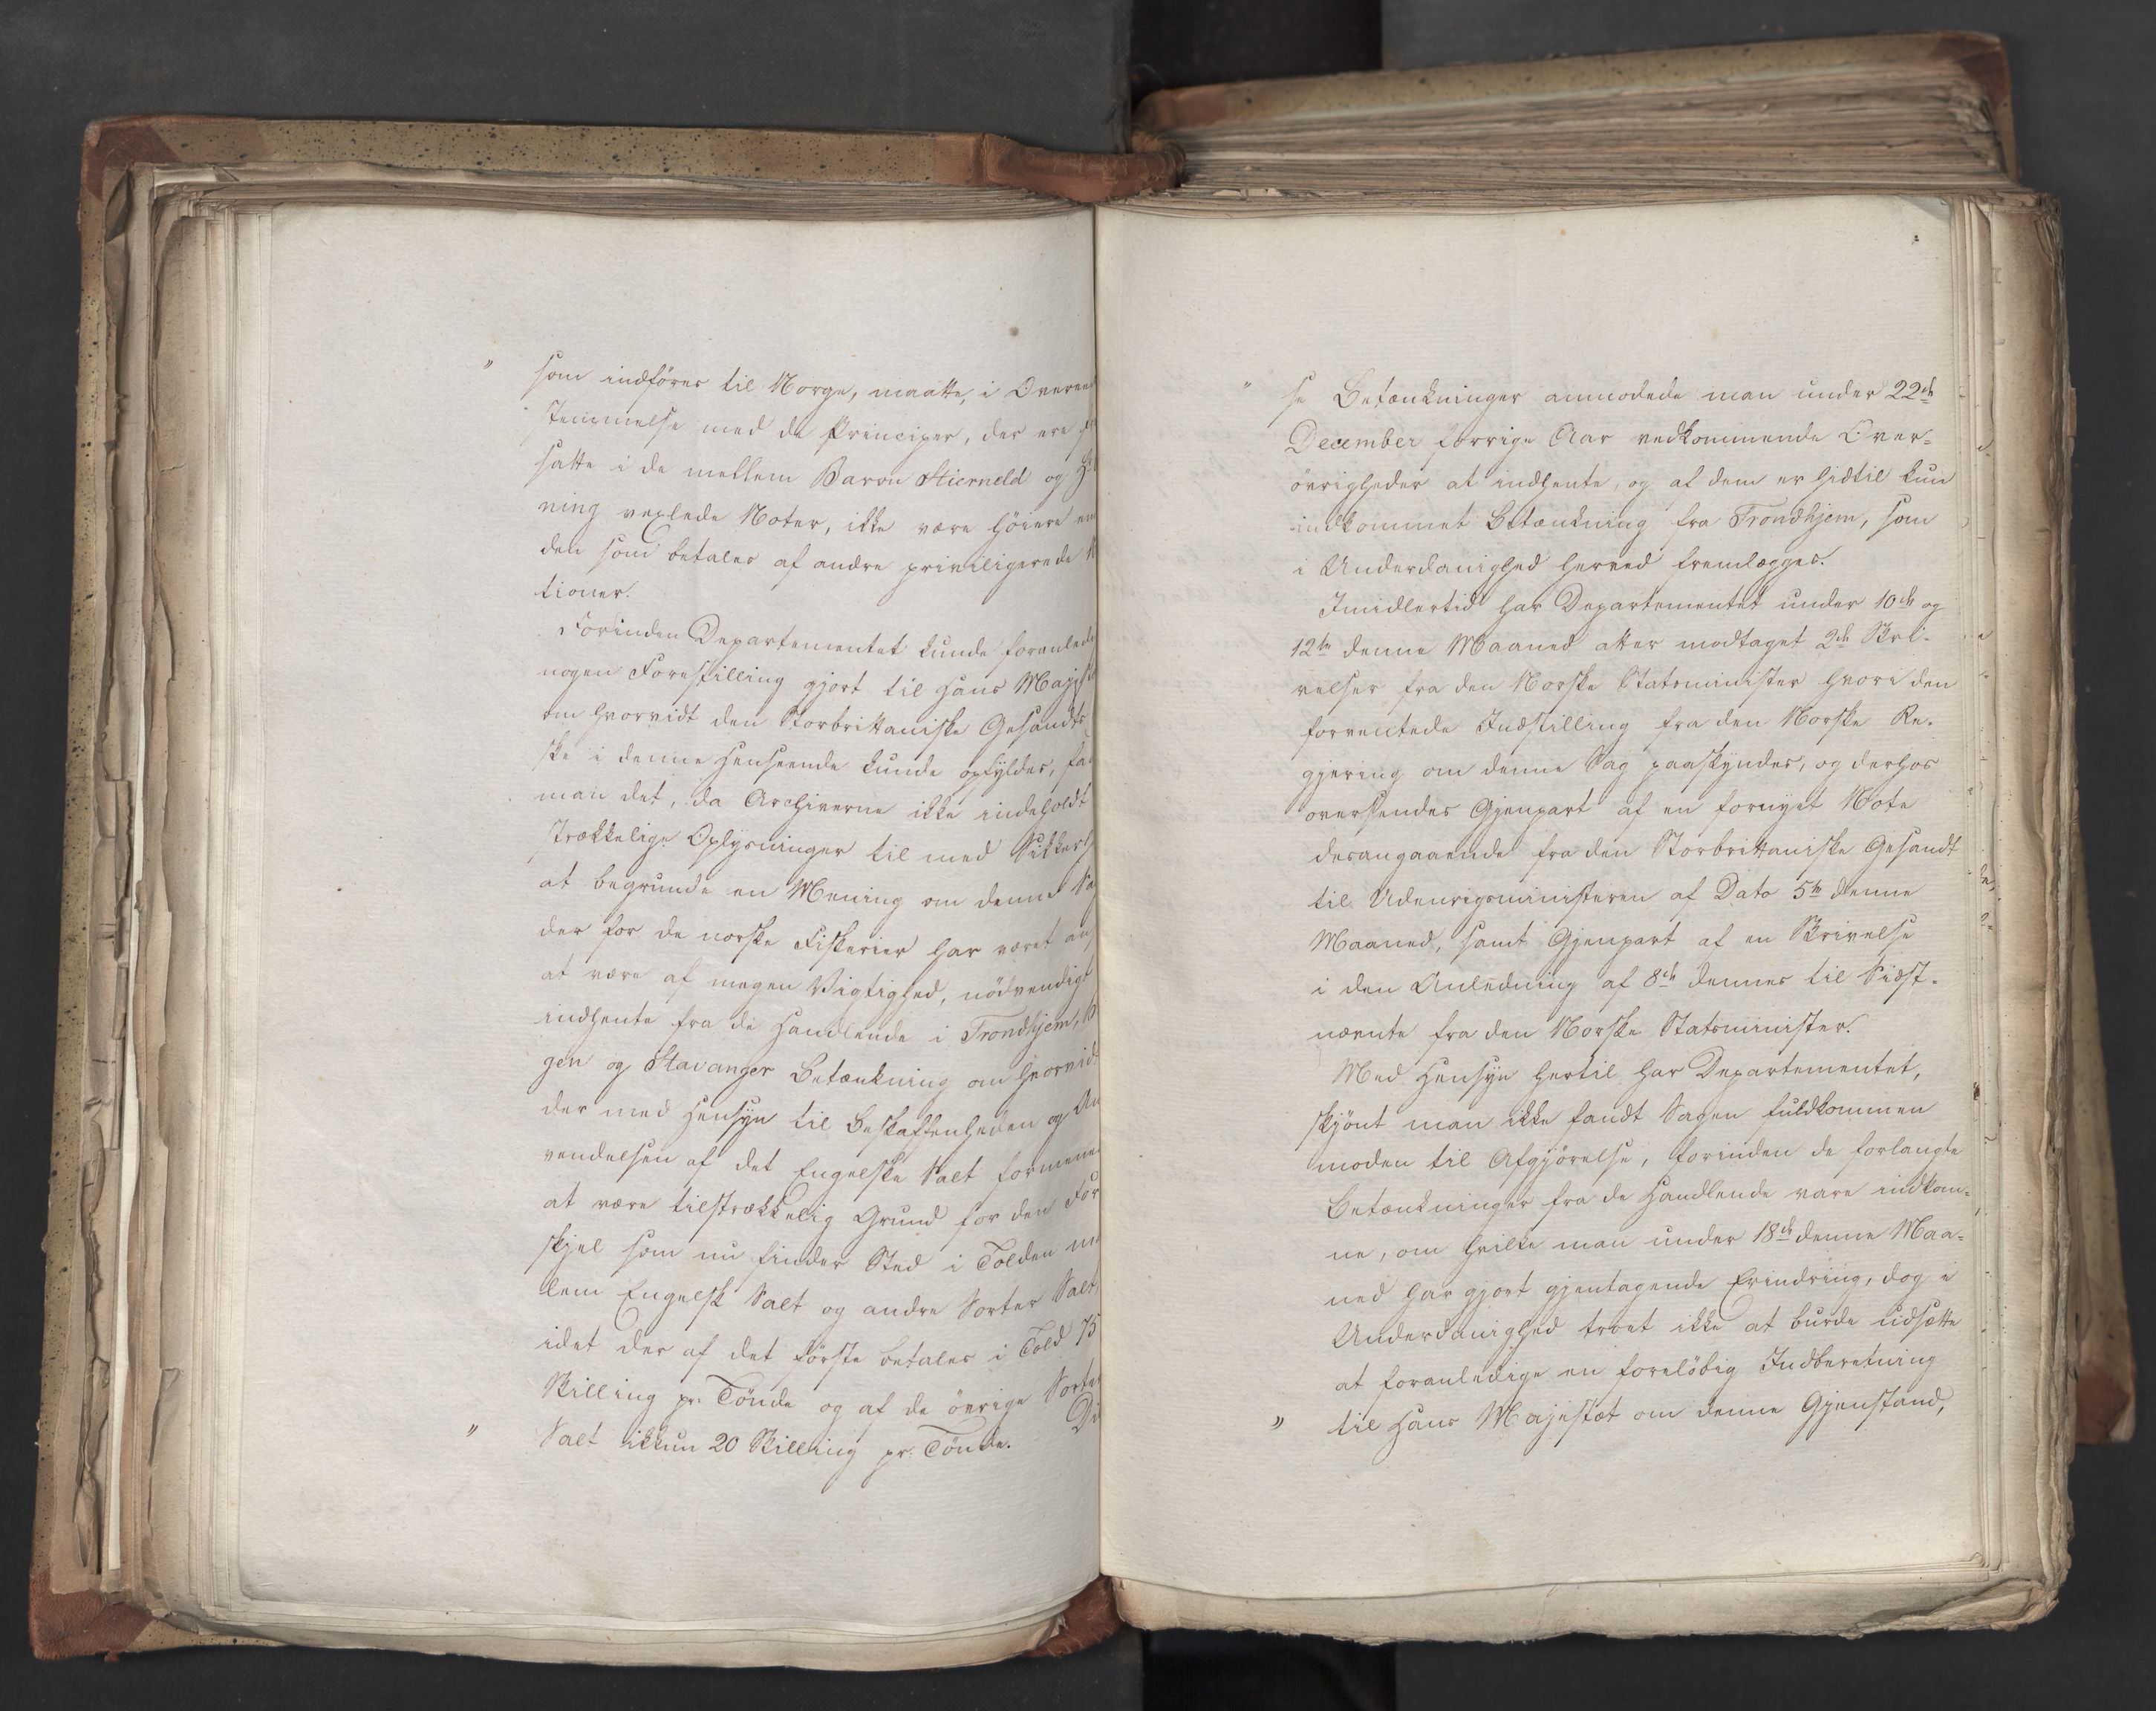 " som indføres til Norge, maatte, i Overeen
stemmelse med de Principer, der ere f
satte i de mellem Baron Stierneld og H
ning vexlede Noter, ikke være høiere en
den som betales af andre priviligerede N
tioner.
Forinden Departementet kunde foranled
nogen Forestilling gjort til Hans Majest
om hvorvidt den Storbrittaniske Gesandts
ske i denne Henseende kunde opfyldes, fa
man det, da Archiverne ikke indeholdt
strækkelige Oplysninger til med Sikkerh
at begrunde en Mening om denne Sa
der for de norske Fiskerier har været an
at være af megen Vigtighed, nödvendigt
indhente fra de Handlende i Trondhjem, B
gen og Stavanger Betænkning om hvorvid
der med Hensyn til Beskaffenheden og An
vendelsen af det Engelske Salt formene
at være tilstrækkelig Grund for den For
skjel som nu finder Sted i Tolden me
lem Engelsk Salt og andre Sorter Salt,
idet der af det förste betales i Told 75
Skilling pr. Tönde og af de övrige Sorter
" Salt ikkun 20 Skilling pr. Tönde.
Di
" se Betænkninger anmodede man under 22de
December forrige Aar vedkommende Over-
övrigheder at indhente, og af dem er hidtil kun
indkommet Betænkning fra Trondhjem, som
i Underdanighed herved fremlægges.
Imidlertid har Departementet under 10de og
12te denne Maaned atter modtaget 2de Skri-
velser fra den Norske Statsminister hvori den
forventede Indstilling fra den Norske Re-
gjering om denne Sag paaskyndes, og derhos
oversendes Gjenpart af en fornyet Note
desangaaende fra den Storbrittaniske Gesandt
til Udenrigsministeren af Dato 5te denne
Maaned, samt Gjenpart af en Skrivelse
i den Anledning af 8de dennes til Sidst-
nævnte fra den Norske Statsminister.
Med Hensyn hertil har Departementet,
skjönt man ikke fandt Sagen fuldkommen
moden til Afgjörelse, forinden de forlangte
Betænkninger fra de Handlende vare indkom-
ne, om hvilke man under 18de denne Maa-
ned har gjort gjentagende Erindring, dog i
Underdanighed troet ikke at burde udsætte
at foranledige en forelöbig Indberetning
" til Hans Majestæt om denne Gjenstand,